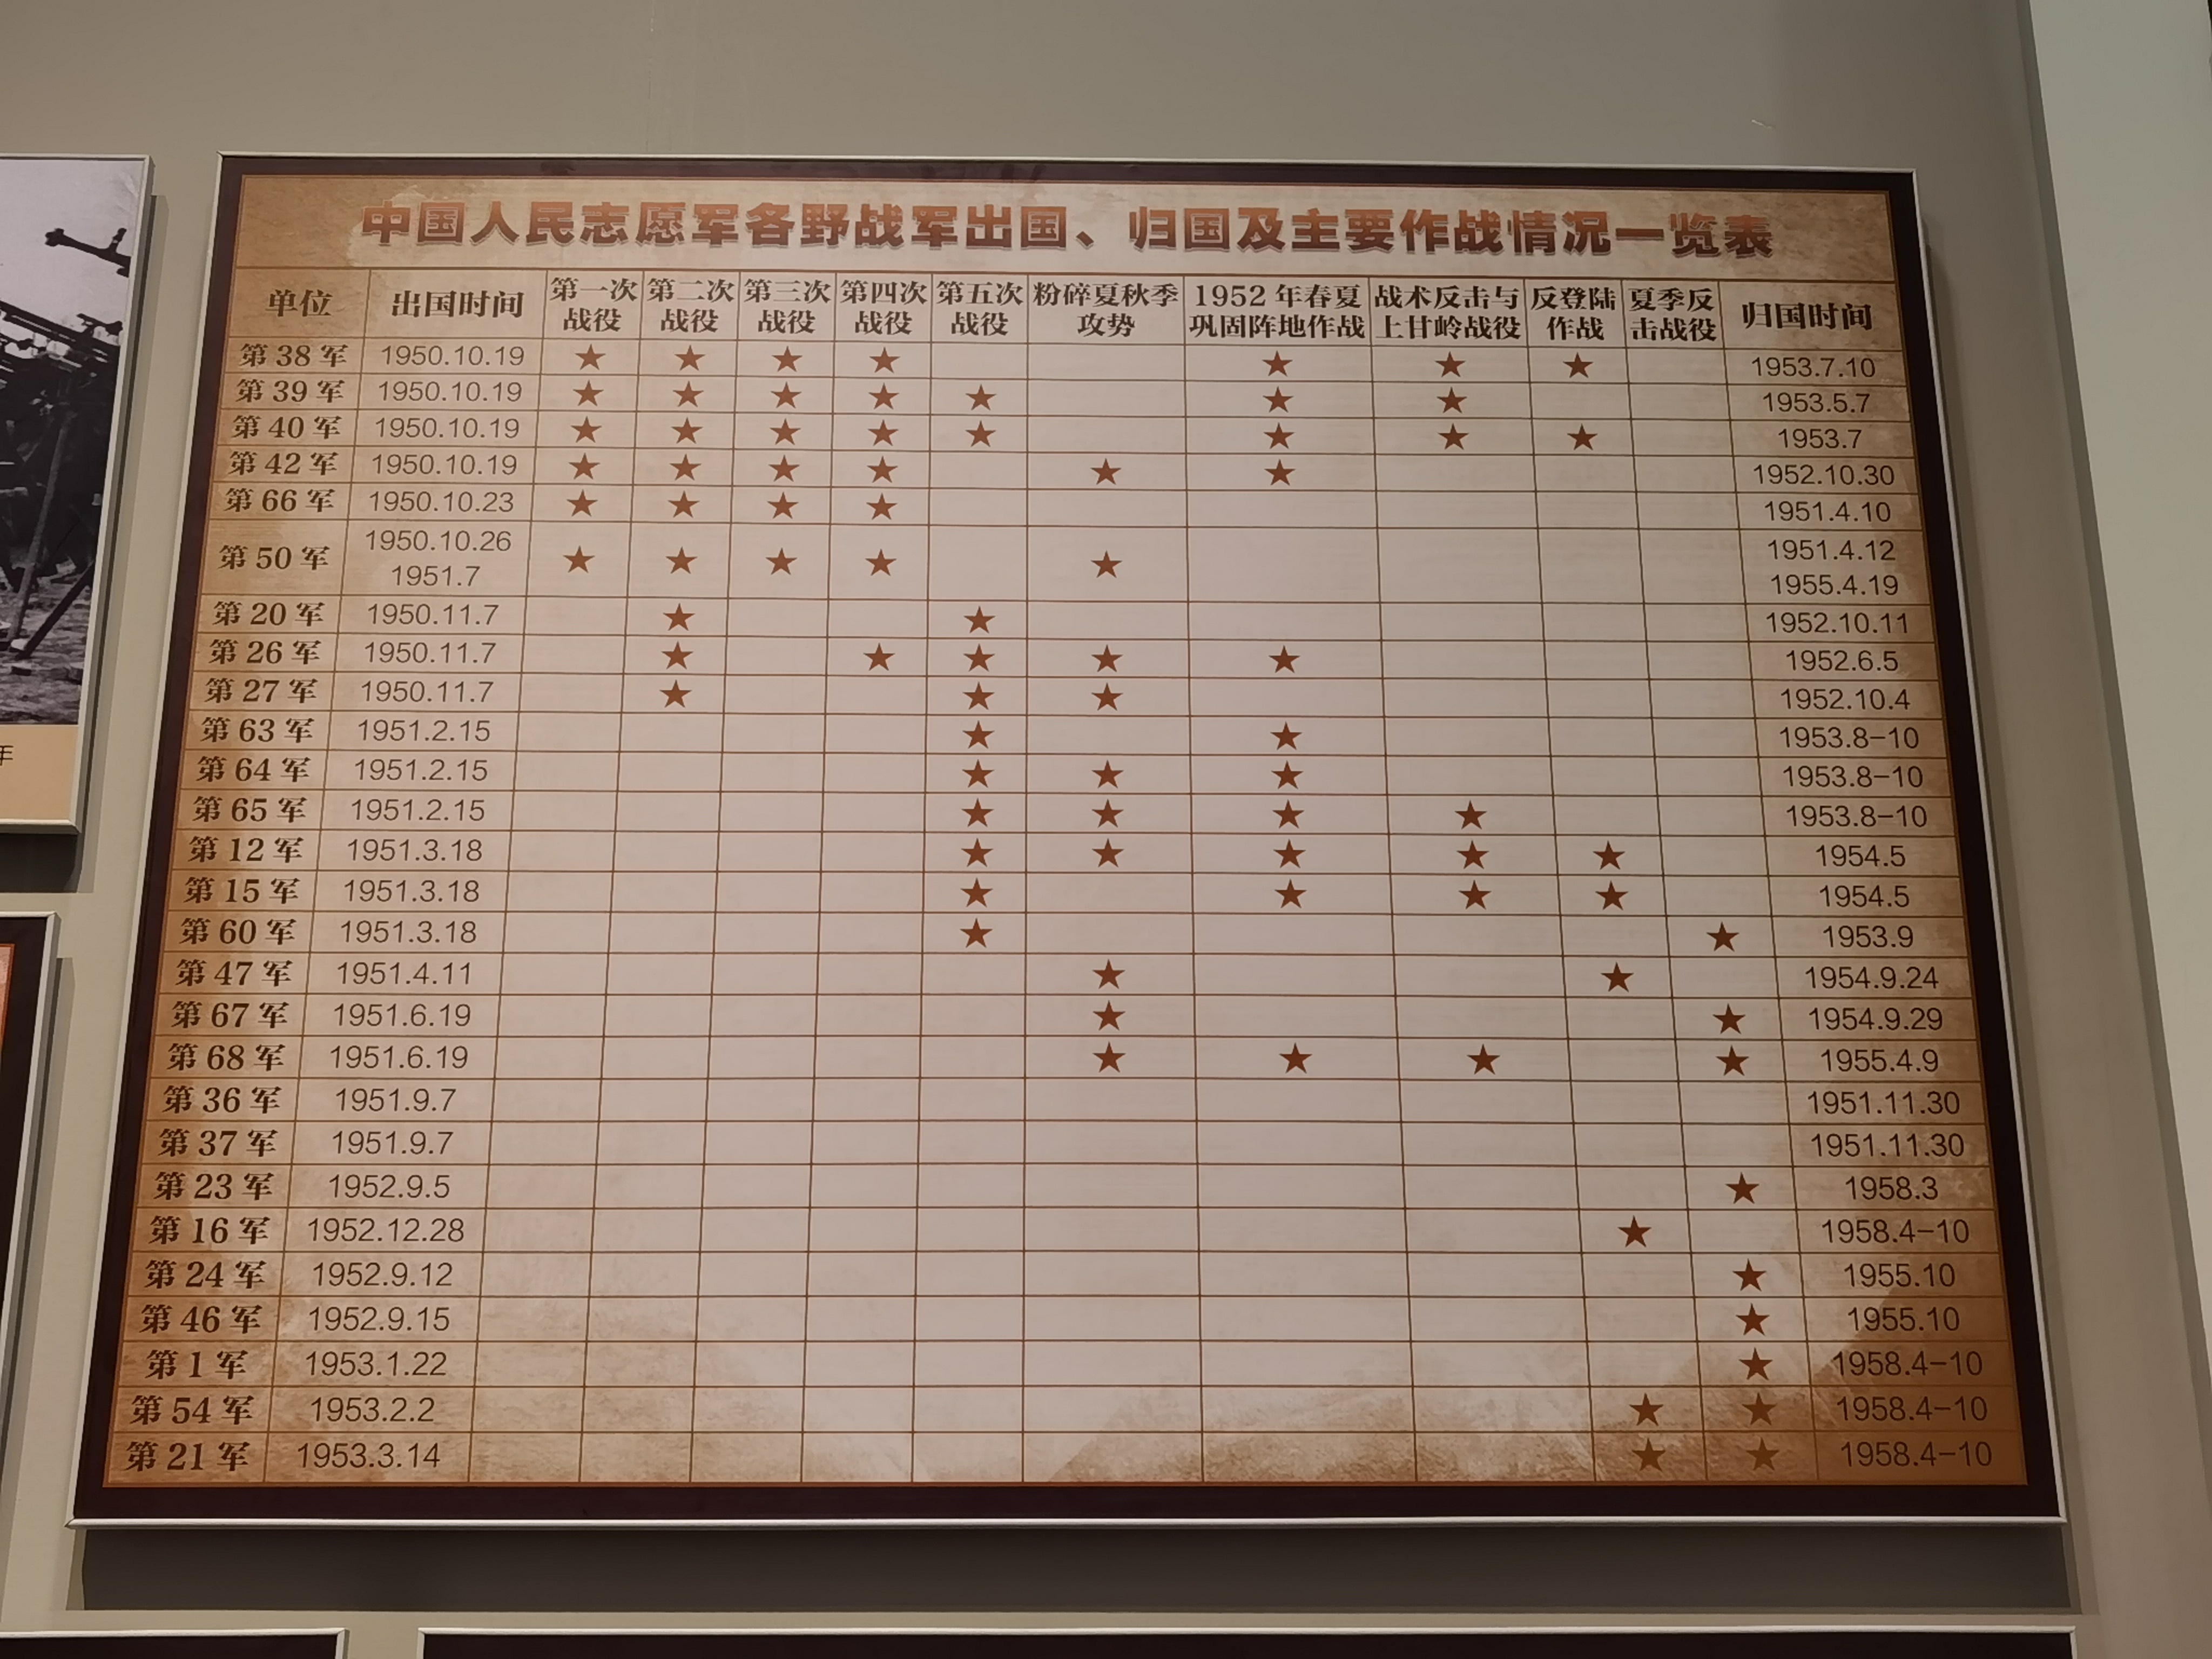 中国人民志愿军各野战军出国、归国及主要作战情况一览表
单位 出国时间 第一次战役 第二次战役 第三次战役 第四次战役 第五次战役 粉碎夏秋季攻势 1952年春夏巩固阵地作战 战术反击与上甘岭战役 反登陆作战 夏季反击战役 归国时间
第38军 1950.10.19 ★ ★ ★ ★ ★ ★ ★ 1953.7.10
第39军 1950.10.19 ★ ★ ★ ★ ★ ★ ★ 1953.5.7
第40军 1950.10.19 ★ ★ ★ ★ ★ ★ ★ ★ 1953.7
第42军 1950.10.19 ★ ★ ★ ★ ★ ★ 1952.10.30
第66军 1950.10.23 ★ ★ ★ ★ 1951.4.10
第50军 1950.10.26 1951.7 ★ ★ ★ ★ ★ 1951.4.12 1955.4.19
第20军 1950.11.7 ★ ★ 1952.10.11
第26军 1950.11.7 ★ ★ ★ ★ ★ 1952.6.5
第27军 1950.11.7 ★ ★ ★ 1952.10.4
第63军 1951.2.15 ★ ★ 1953.8-10
第64军 1951.2.15 ★ ★ ★ 1953.8-10
第65军 1951.2.15 ★ ★ ★ ★ 1953.8-10
第12军 1951.3.18 ★ ★ ★ ★ ★ 1954.5
第15军 1951.3.18 ★ ★ ★ ★ 1954.5
第60军 1951.3.18 ★ ★ 1953.9
第47军 1951.4.11 ★ ★ 1954.9.24
第67军 1951.6.19 ★ ★ 1954.9.29
第68军 1951.6.19 ★ ★ ★ ★ 1955.4.9
第36军 1951.9.7 1951.11.30
第37军 1951.9.7 1951.11.30
第23军 1952.9.5 ★ 1958.3
第16军 1952.12.28 ★ 1958.4-10
第24军 1952.9.12 ★ 1955.10
第46军 1952.9.15 ★ 1955.10
第1军 1953.1.22 ★ 1958.4-10
第54军 1953.2.2 ★ ★ 1958.4-10
第21军 1953.3.14 ★ ★ 1958.4-10